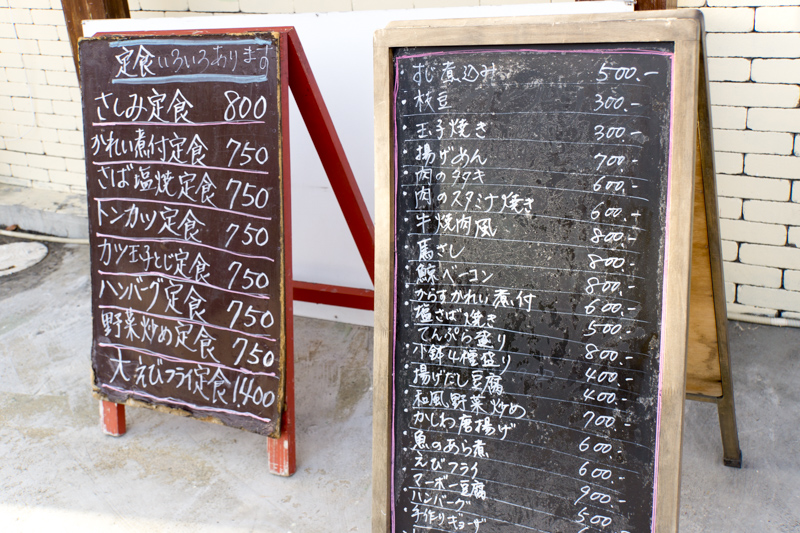 定食いろいろあります
さしみ定食 800
かれい煮付定食 750
さば塩焼定食 750
トンカツ定食 750
カツ玉子とじ定食 750
ハンバーグ定食 750
野菜炒め定食 750
大えびフライ定食 1400
すじ煮込み 500.-
・枝豆 300.-
・玉子焼き 300.-
・揚げめん 700.-
・肉のタタキ 600.-
・肉のスタミナ焼き 600.-
・牛焼肉風 800.-
・馬さし 800.-
・鯨ベーコン 800.-
・からすかれい煮付 600.-
・塩さば焼き 500.-
・てんぷら盛り 800.-
・小鉢4種盛り 400.-
・揚げだし豆腐 400.-
・和風野菜炒め 700.-
・かしわ唐揚げ 600.-
・魚のあら煮 600.-
・えびフライ 900.-
・マーボー豆腐 500.-
・ハンバーグ
・手作りギョーザ